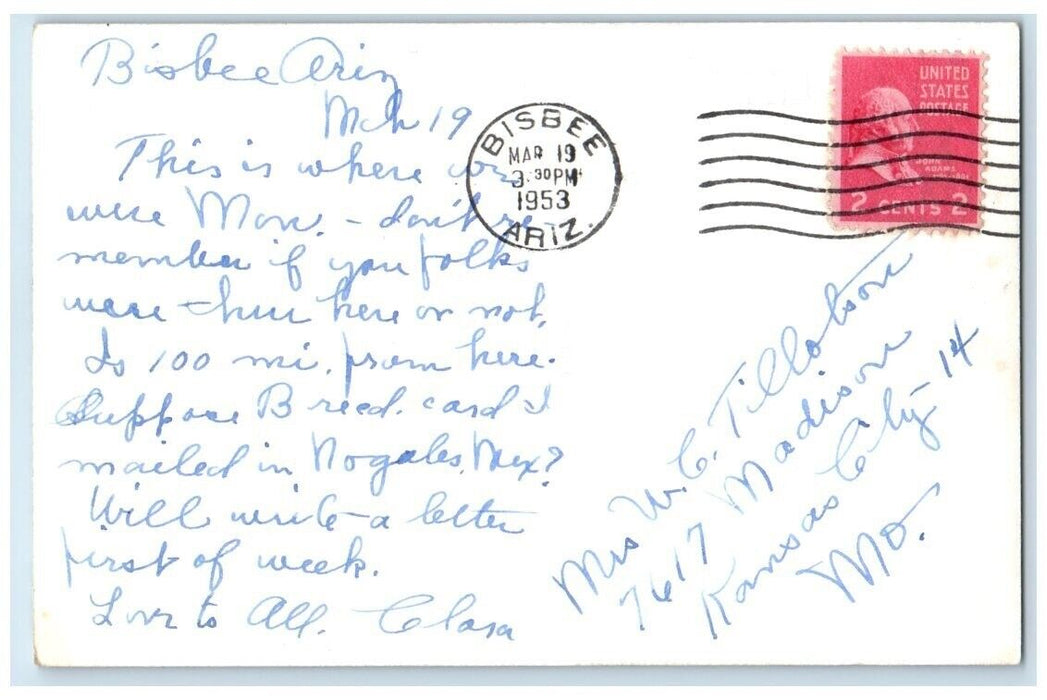 Bisbee Ariz
Mch 19
This is where we
were Mon. - don't re-
member if you folks
were thru here or not.
Is 100 mi. from here.
Suppose B recd. card I
mailed in Nogales, Mex?
Will write a letter
first of week.
Love to All. Clara
BISBEE
MAR 19
3:30 PM
1953
ARIZ.
UNITED
STATES
POSTAGE
JOHN
ADAMS
2 CENTS 2
Mrs W. C. Tillotson
7617 Madison
Kansas City 14
Mo.